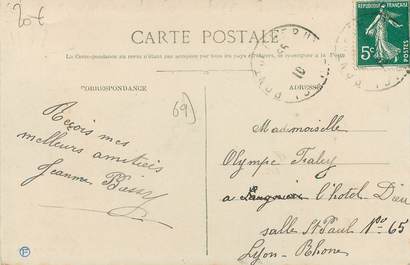 20 €
CARTE POSTALE
La Correspondance au verso n'était pas acceptée par tous les pays étrangers, se renseigner à la Poste
CORRESPONDANCE
ADRESSE
REPUBLIQUE FRANÇAISE
5c
POSTES
69
Reçois mes
meilleurs amitiés
Jeanne
Mademoiselle
Olympe
a l'hôtel Dieu
salle St Paul No 65
Lyon - Rhone